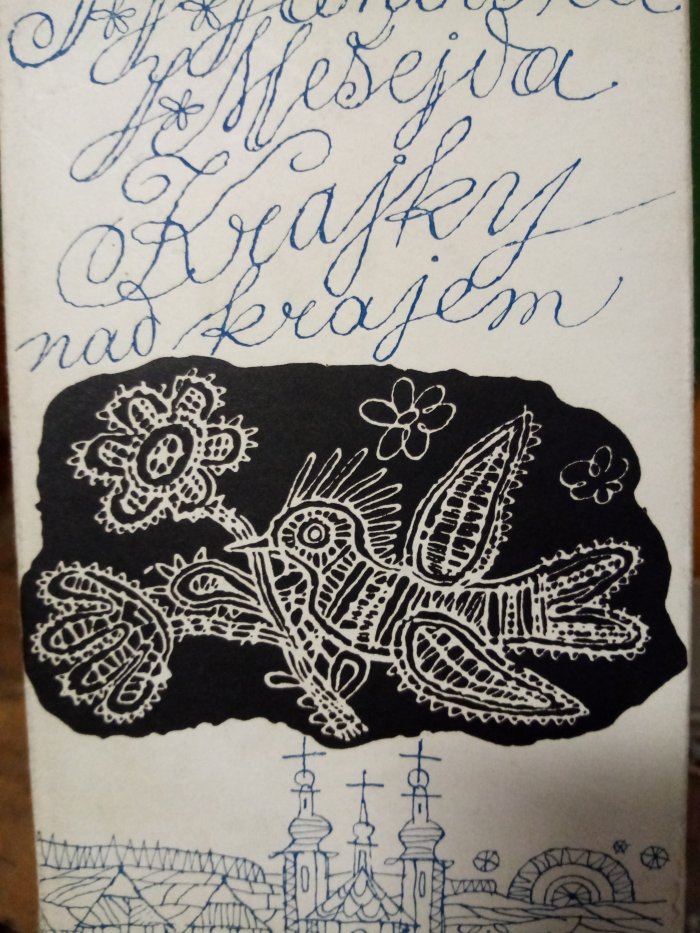 Mešejda
Krajky
nad krajem